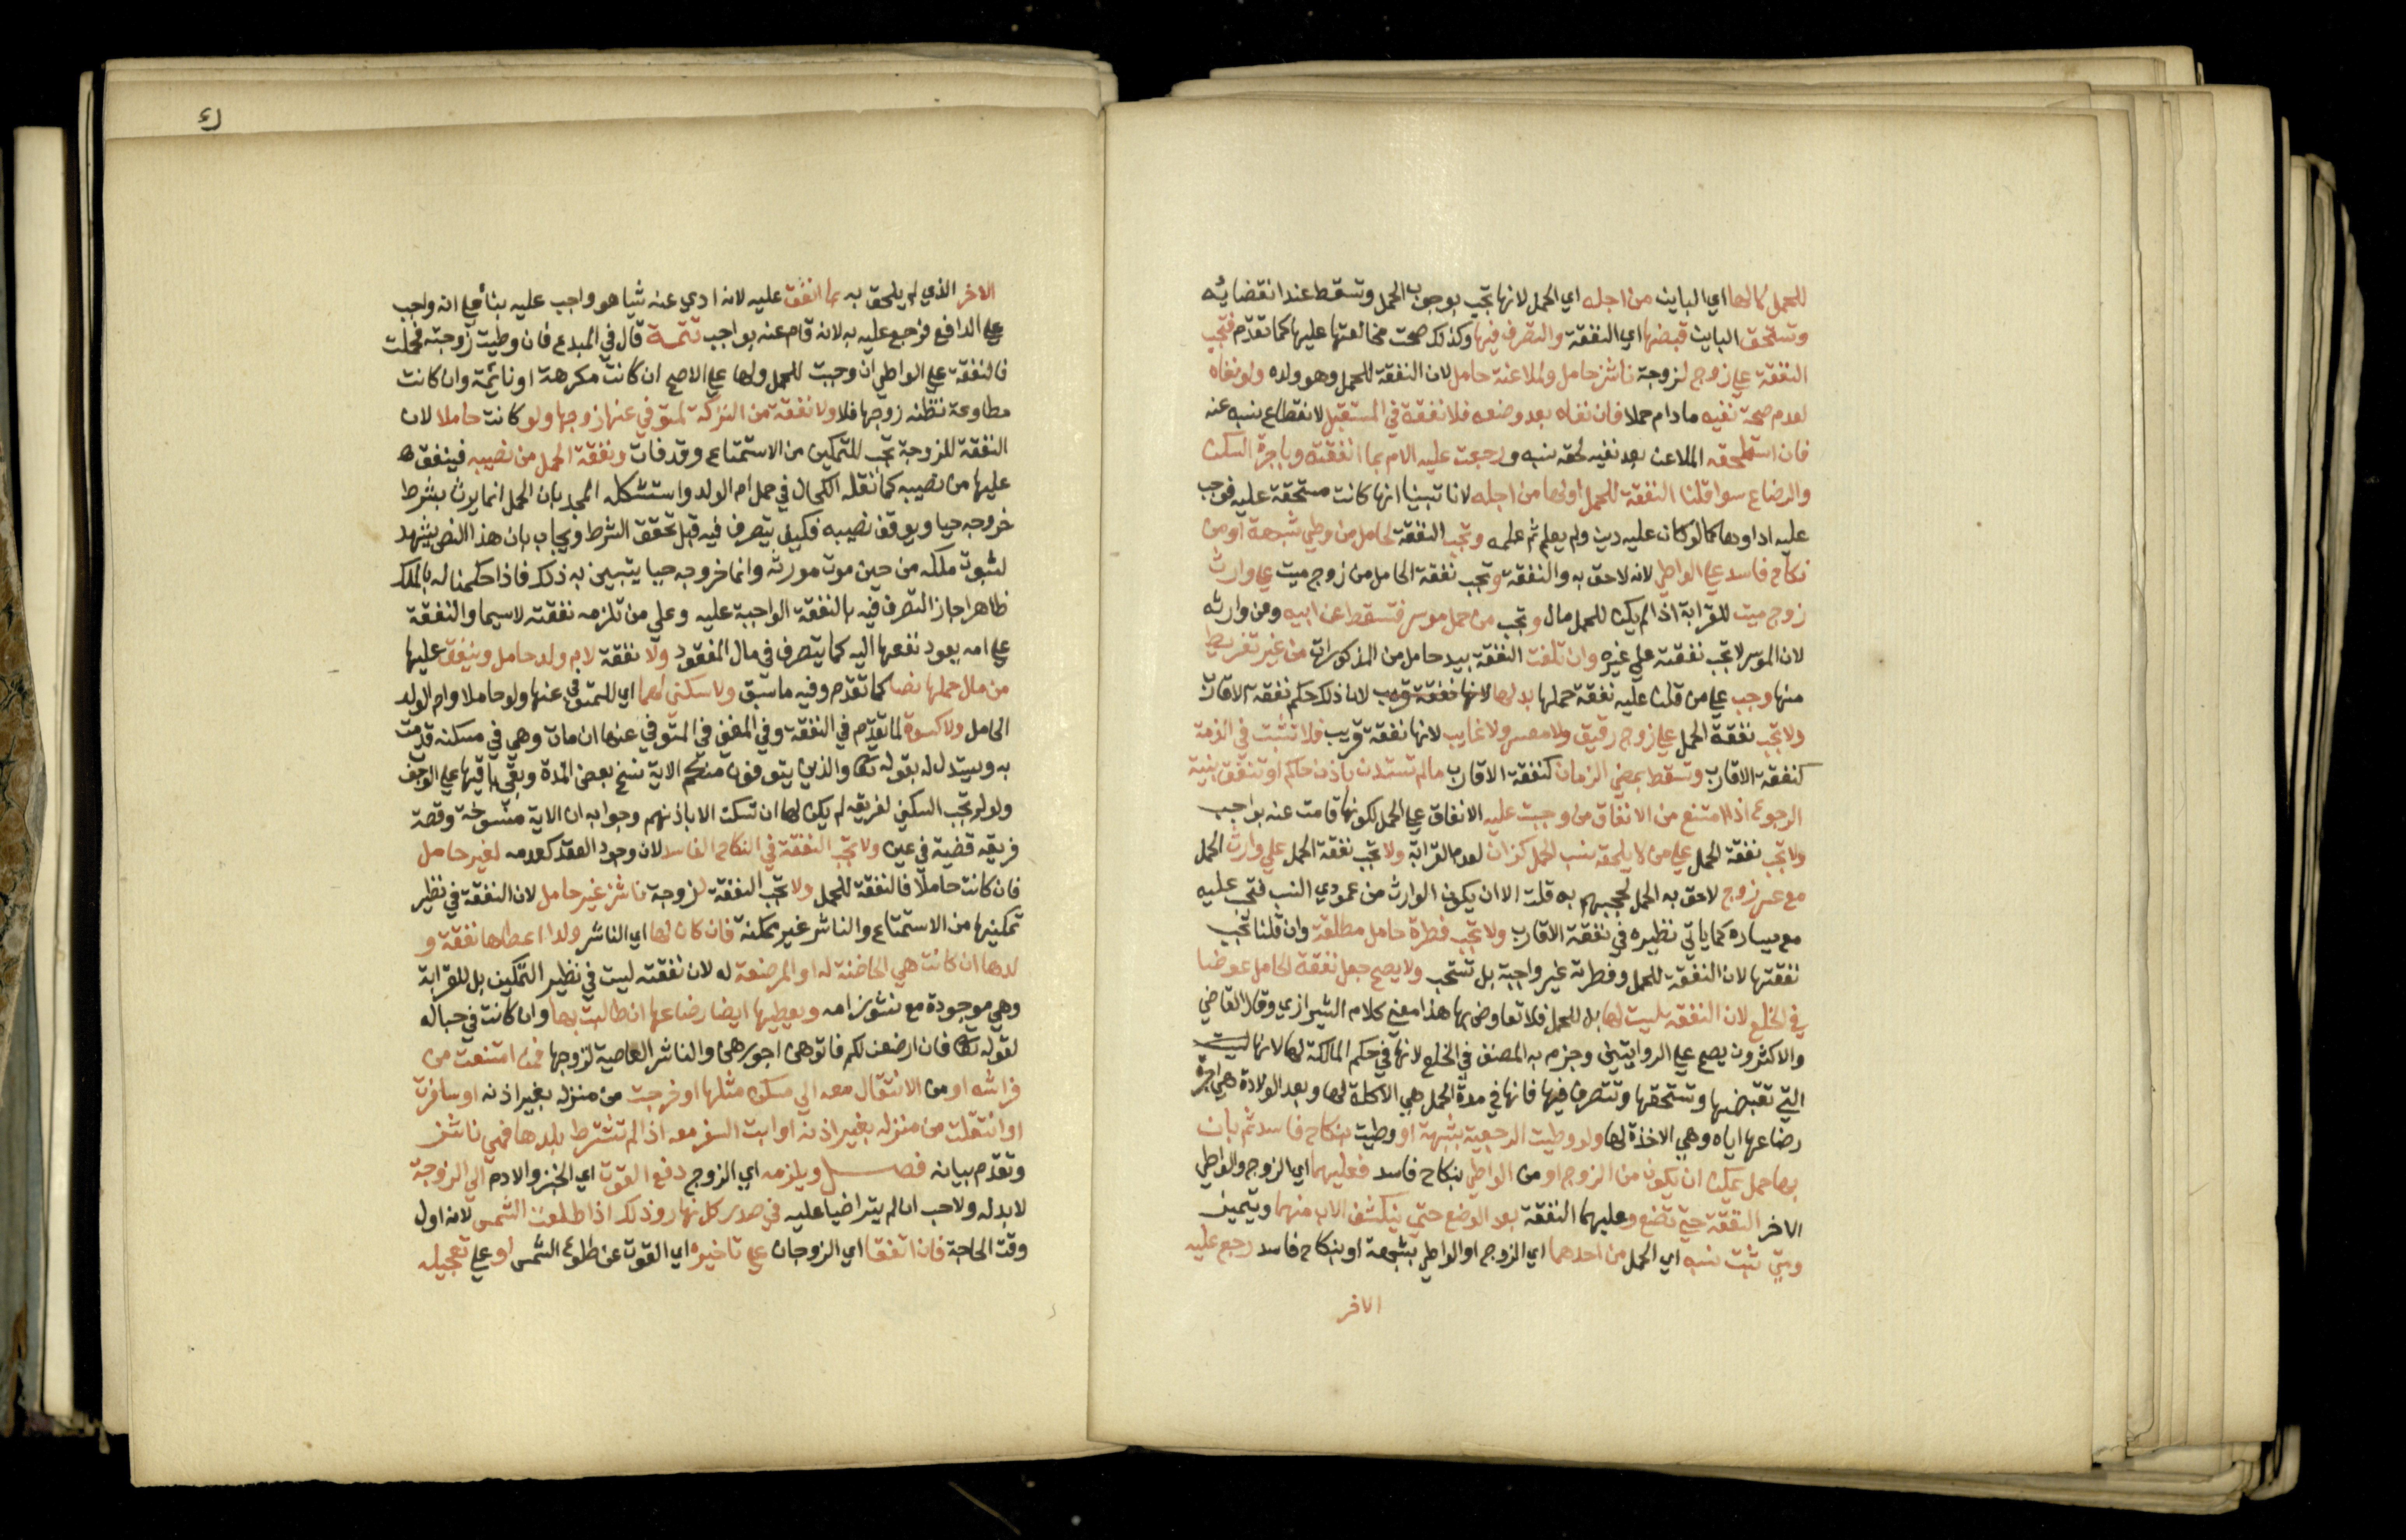 للحمل لا لها اي الباين من اجله اي الحمل لانها تجب بوجوب الحمل وتسقط عند انقضايه
وتستحق الباين قبضها اي النفقة والتصرف فيها وكذلك صحت مخالعتها عليها كما تقدم فتجب
النفقة علي زوج لزوجة ناشز حامل ولملاعنة حامل لان النفقة للحمل وهو ولده ولو نفاه
لعدم صحة نفيه ما دام حملا فان نفاه بعد وضعه فلا نفقة في المستقبل لانقطاع نسبه عنه
فان استلحقه الملاعن بعد نفيه لحقه نسبه ورجعت عليه الام بما انفقته وباجرة السكن
والرضاع سوا قلنا النفقة للحمل او لها من اجله لانا تبينا انها كانت مستحقة عليه فوجب
عليه اداوها كما لو كان عليه دين ولم يعلم ثم علمه وتجب النفقة لحامل من وطي شبهة او من
نكاح فاسد علي الواطي لانه لاحق به والنفقة وتجب نفقة الحامل من زوج ميت علي وارث
زوج ميت للقرابة اذا لم يكن للحمل مال وتجب من حمل موسر فتسقط عن ابيه ومن وارثه
لان الموسر لا تجب نفقته علي غيره وان تلفت النفقة بيد حامل من المذكورات من غير تفريط
منها وجب علي من قلنا عليه نفقة حملها بدلها لانها نفقة قريب لان ذلك حكم نفقة الاقارب
ولا تجب نفقة الحمل علي زوج رقيق ولا معسر ولا غايب لانها نفقة قريب فلا تثبت في الذمة
كنفقة الاقارب وتسقط بمضي الزمان كنفقة الاقارب ما لم تستدن باذن حاكم او تنفق بنية
الرجوع اذا امتنع من الانفاق من وجبت عليه الانفاق علي الحمل لكونها قامت عنه بواجب
ولا تجب نفقة الحمل علي من لا يلحقه نسب الحمل كزان لعدم القرابة ولا تجب نفقة الحمل علي وارث الحمل
مع عسر زوج لاحق به الحمل لحجبهم به قلت الا ان يكون الوارث من عمودي النسب فتجب عليه
مع يساره كما ياتي نظيره في نفقة الاقارب ولا تجب فطرة حامل مطلقة وان قلنا تجب
نفقتها لان النفقة للحمل وفطرته غير واجبة بل تستحب ولا يصح جعل نفقة الحامل عوضا
في الخلع لان النفقة ليست لها بل للحمل فلا تعاوض بها هذا معني كلام الشيرازي وقال القاضي
والاكثرون يصح علي الروايتين وجزم به المصنف في الخلع لانها في حكم المالكة لها لانها ليست
التي تقبضها وتستحقها وتتصرف فيها فانها في مدة الحمل هي الاكلة لها وبعد الولادة هي اجرة
رضاعها اياه وهي الاخذة لها ولو وطيت الرجعية بشبهة او وطيت بنكاح فاسد ثم بان
بها حمل يمكن ان يكون من الزوج او من الواطي بنكاح فاسد فعليهما اي الزوج والواطي
الاخر النفقة حتي تضع وعليهما النفقة بعد الوضع حتي ينكشف الاب منهما ويتميز
ومتي ثبت نسبه اي الحمل من احدهما اي الزوج او الواطي بشبهة او بنكاح فاسد رجع عليه
الاخر
الاخر الذي لم يلحق به بما انفق عليه لانه ادي عنه شيا هو واجب عليه بناً علي انه واجب
علي الدافع فرجع عليه به لانه قام عنه بواجب تتمة قال في المبدع فان وطيت زوجته فحملت
فالنفقة علي الواطي ان وجبت للحمل ولها علي الاصح ان كانت مكرهة او نايمة وان كانت
مطاوعة تظنه زوجها فلا ولا نفقة من التركة لمتوفي عنها زوجها ولو كانت حاملا لان
النفقة للزوجة تجب للتمكين من الاستمتاع وقد فات ونفقة الحمل من نصيبه فينفق
عليها من نصيبه كما نقله الكحال في حمل ام الولد واستشكله المجد بان الحمل انما يرث بشرط
خروجه حيا ويوقف نصيبه فكيف يتصرف فيه قبل تحقق الشرط ويجاب بان هذا النص يشهد
لثبوت ملكه من حين موت مورثه وانما خروجه حيا يتبين به ذلك فاذا حكمنا له بالملك
ظاهرا جاز التصرف فيه بالنفقة الواجبة عليه وعلي من تلزمه نفقته لا سيما والنفقة
علي امه يعود نفعها اليه كما يتصرف في مال المفقود ولا نفقة لام ولد حامل وينفق عليها
من مال حملها نصا كما تقدم وفيه ما سبق ولا سكنى لهما اي للمتوفي عنها ولو حاملا وام الولد
الحامل ولا كسوة لما تقدم في النفقة وفي المغني في المتوفي عنها ان مات وهي في مسكنه قدمت
به ويستدل له بقوله تعا والذين يتوفون منكم الاية نسخ بعض المدة وبقي باقيها علي الوجوب
ولو لم تجب السكني لفريعة لم يكن لها ان تسكن الا باذنهم وجوابه ان الاية منسوخة وقصة
فريعة قضية في عين ولا تجب النفقة في النكاح الفاسد لان وجود العقد كعدمه لغير حامل
فان كانت حاملا فالنفقة للحمل ولا تجب النفقة لزوجة ناشز غير حامل لان النفقة في نظير
تمكينها من الاستمتاع والناشز غير ممكنة فان كان لها اي الناشز ولد اعطاها نفقة و
لدها ان كانت هي الحاضنة له او المرضعة له لان نفقته ليست في نظير التمكين بل للقرابة
وهي موجودة مع نشوز امه ويعطيها ايضا رضاعها ان طالبت بها وان كانت في حباله
لقوله تعا فان ارضعن لكم فاتوهن اجورهن والناشز العاصية لزوجها فمن امتنعت من
فراشه او من الانتقال معه الي مسكن مثلها او خرجت من منزله بغير اذنه او سافرت
او انتقلت من منزله بغير اذنه او ابت السفر معه اذا لم تشترط بلدها فهي ناشز
وتقدم بيانه فصل ويلزمه اي الزوج دفع القوت اي الخبز والادم الي الزوجة
لا بدله ولا حب ان لم يتراضيا عليه في صدر كل نهار وذلك اذا طلعت الشمس لانه اول
وقت الحاجة فان اتفقا اي الزوجان علي تاخيره اي القوت عن طلوع الشمس او علي تعجيله